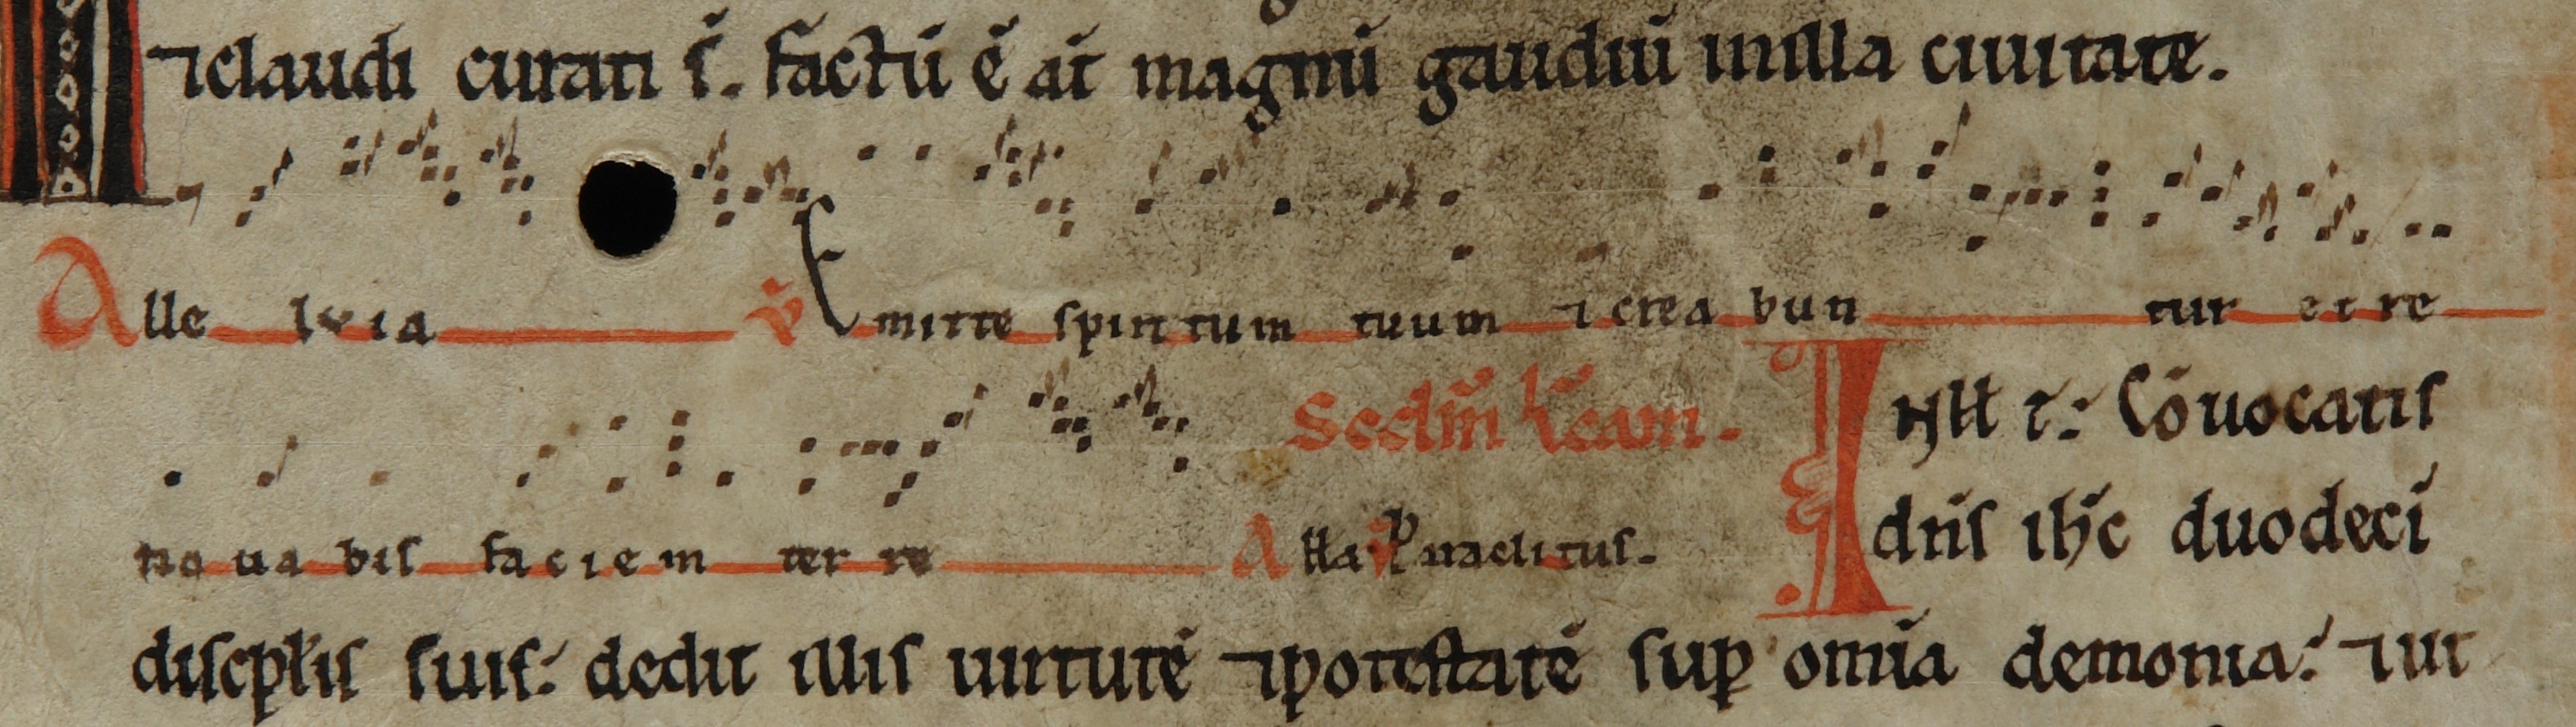 ⁊claudi curati s̄. factū ē aū magnū gaudiū inilla ciuitate.
Alle luia v̄ Emitte spiritum tuum ⁊ crea bun tur et re
no ua bis faciem ter re Secdm̄ lucam. In illt̄ : Cōuocatis
Alla v̄ Paraclitus. dn̄s ih̄c duodecī
discip̄lis suis: dedit illis uirtutē ⁊potestatē sup̄ om̄ia demonia: ⁊ut